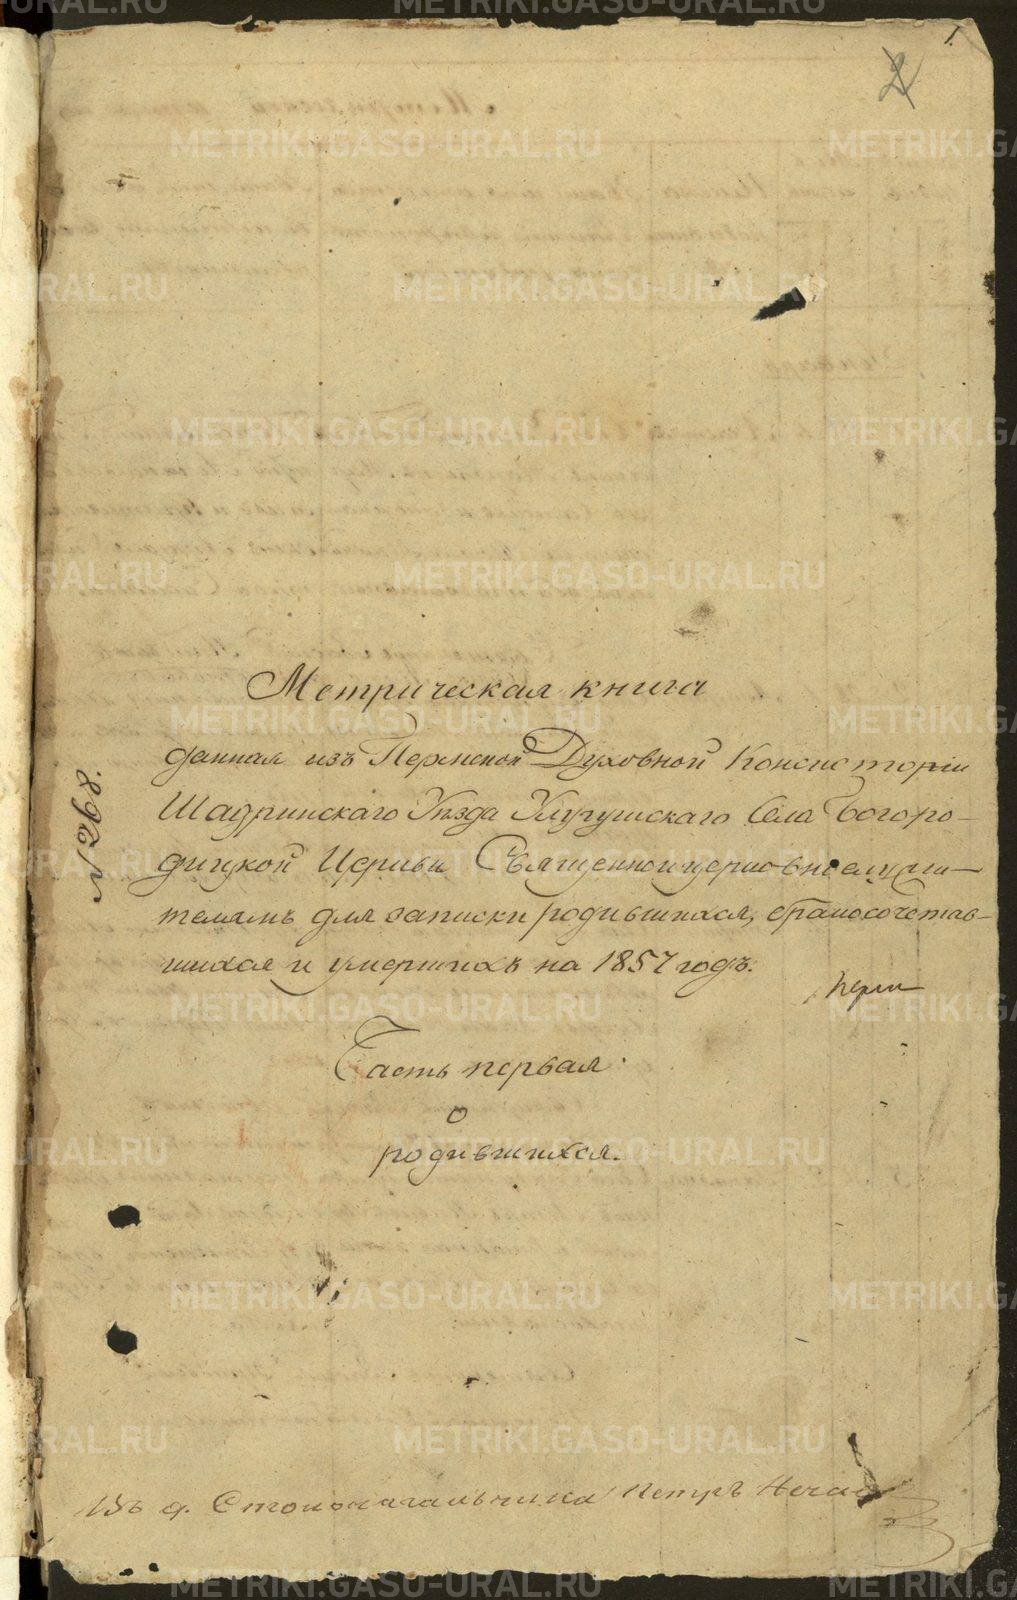 1.
2
№ 268.
Метрическая книга
данная изъ Пермской Духовной Консисторіи
Шадринскаго Уѣзда Улугушскаго Села Богоро-
дицкой Церкви Священноцерковнослужи-
телямъ для записки родившихся, бракосочетав-
шихся и умершихъ на 1857 годъ.
Часть первая
о
родившихся.
Въ д. Столоначальника Петръ
METRIKI.GASO-URAL.RU